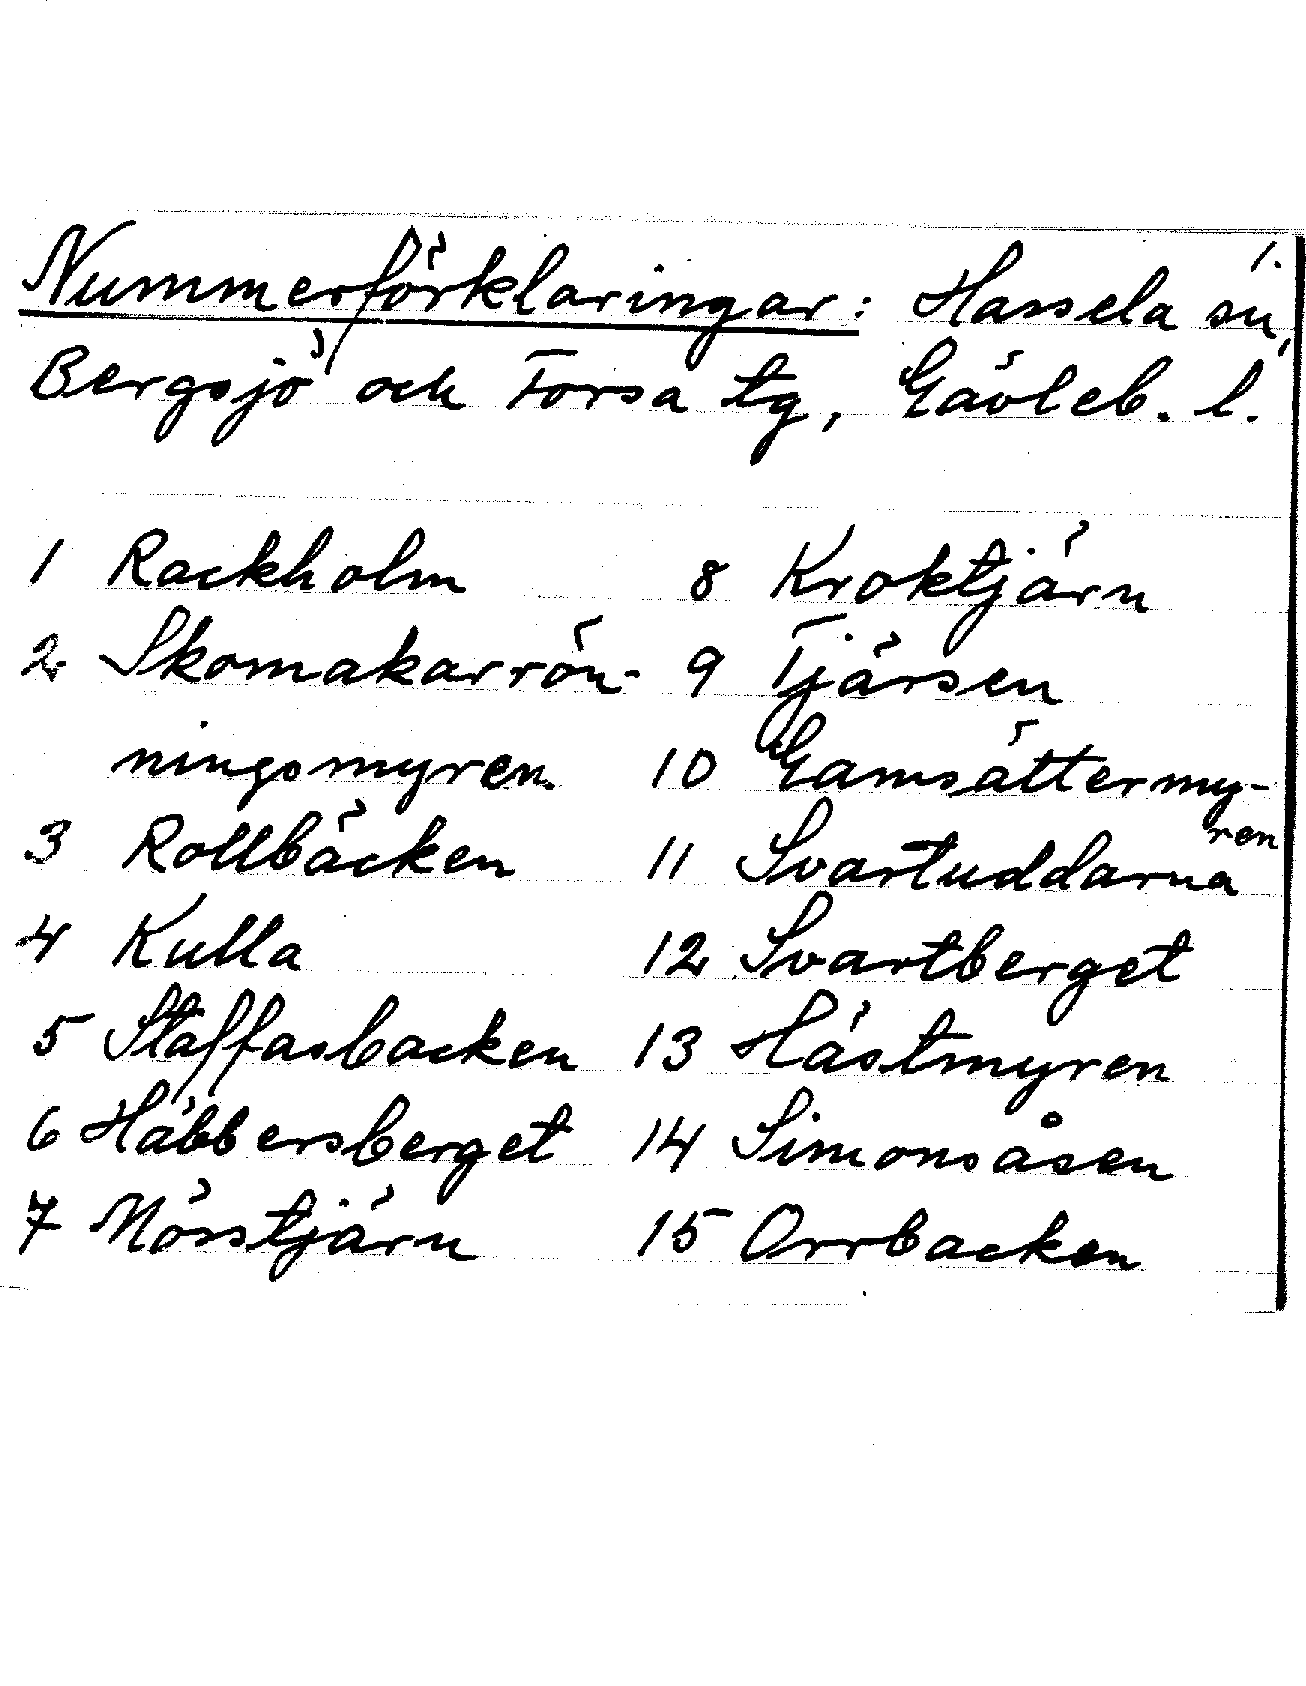 1.
Nummerförklaringar: Hassela sn,
Bergsjö och Forsa tg, Gävleb. l.
1 Rackholm
2 Skomakarrön-
ningsmyren
3 Rollbäcken
4 Kulla
5 Staffasbacken
6 Häbbersberget
7 Mösstjärn
8 Kroktjärn
9 Tjärsen
10 Gamsättermy-
ren
11 Svartuddarna
12 Svartberget
13 Hästmyren
14 Simonsåsen
15 Orrbacken